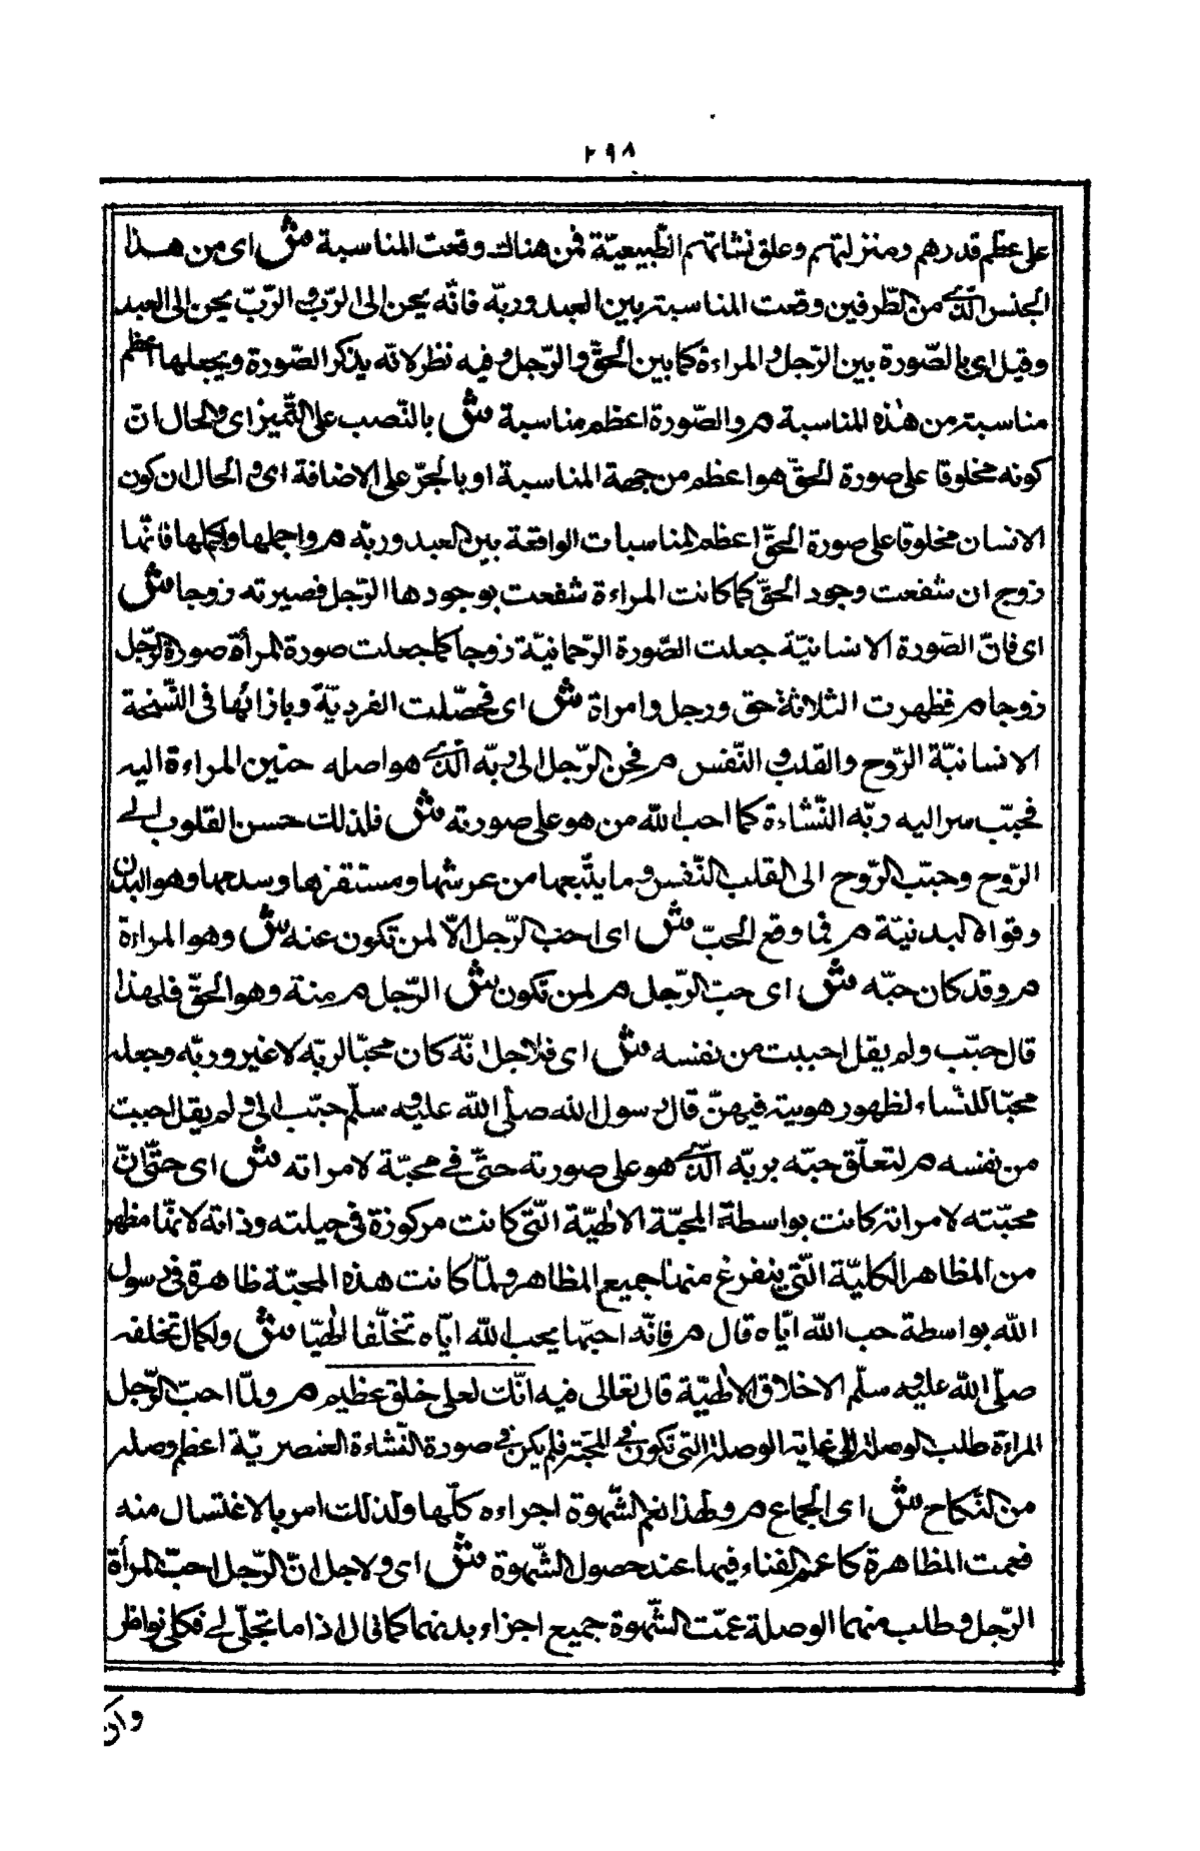 ٢٩٨
على عظم قدرهم ومنزلتهم وعلو نشاتهم الطّبيعيّة فمن هناك وقعت المناسبة ش اى من هذا
الجنس الّذى من الطّرفين وقعت المناسبة بين العبد وربّه فانّه يحن الى الرّبّ و الرّبّ يحن الى العبد
وقيل اى بالصّورة بين الرّجل و المراءة كما بين الحقّ و الرّجل و فيه نظر لانّه يذكر الصّورة ويجعلها اعظم
مناسبة من هذه المناسبة م والصّورة اعظم مناسبة ش بالنّصب على التّميز اى و الحال انّ
كونه مخلوقا على صورة الحقّ هو اعظم من جهة المناسبة او بالجرّ على الاضافة اى و الحال ان كون
الانسان مخلوقا على صورة الحقّ اعظم المناسبات الواقعة بين العبد وربّه م واجملها واكملها فانّها
زوج ان شفعت وجود الحقّ كما كانت المراءة شفعت بوجودها الرّجل فصيرته زوجا ش
اى فانّ الصّورة الانسانيّة جعلت الصّورة الرّحمانيّة زوجا كما جعلت صورة المرأة صورة الرّجل
زوجا م فظهرت الثلاثة حق ورجل وامراة ش اى فحصّلت الفرديّة وبازائها فى النّسخة
الانسانيّة الرّوح والقلب و النّفس م فحن الرّجل الى ربّه الّذى هو اصله حنين المراءة اليه
فحبّب اليه ربّه النّشاءة كما احب الله من هو على صورته ش فلذلك حسن القلوب الى
الرّوح وحبّب الرّوح الى القلب النّفس و ما يتّبعها من عرشها ومستقرها وسدهما وهو البدن
وقواه البدنيّة م فما وقع الحبّ ش اى احب الرّجل الّا لمن تكون عنه ش وهو المراءة
م وقد كان حبّه ش اى حبّ الرّجل م لمن تكون ش الرّجل م منه وهو الحقّ فلهذا
قال حبّب ولم يقل احببت من نفسه ش اى فلاجل انّه كان محبّا لربّه لا غير وربّه وجعله
محبّا للنّساء لظهور هويته فيهنّ قال رسول الله صلّى الله عليه و سلّم حبّب الى و لم يقل احببت
من نفسه م لتعلّق حبّه بربّه الّذى هو على صورته حتّى فى محبّة لامراته ش اى حتّى انّ
محبّته لامراته كانت بواسطة المحبّة الالهيّة الّتى كانت مركوزة فى جبلته وذاته لانّها مظهر
من المظاهر الكليّة الّتى ينفرغ منها جميع المظاهر و لمّا كانت هذه المحبّة ظاهرة فى رسول
الله بواسطة حب الله ايّاه قال م فانّه احبّها بحب الله ايّاه تخلّقا الهيّا ش ولكمال تخلقه
صلّى الله عليه و سلّم الاخلاق الالهيّة قال تعالى فيه انّك لعلى خلق عظيم م ولمّا احبّ الرّجل
المراءة طلب الوصلة الى غاية الوصلة التى تكون فى المحبّة فلم يكن فى صورة النّشاءة العنصريّة اعظم وصلة
من النّكاح ش اى الجماع م ولهذا نعم الشّهوة اجزاءه كلّها ولذلك امر بالاغتسال منه
فعمت المظاهرة كما عم الفناء فيها عند حصول الشّهوة ش اى و لاجل انّ الرّجل احبّ المرأة
الرّجل و طلب منهما الوصلة عمّت الشّهوة جميع اجزاء بدنهما كما قال اذا ما تجلّى لى فكلى نواظر
وان